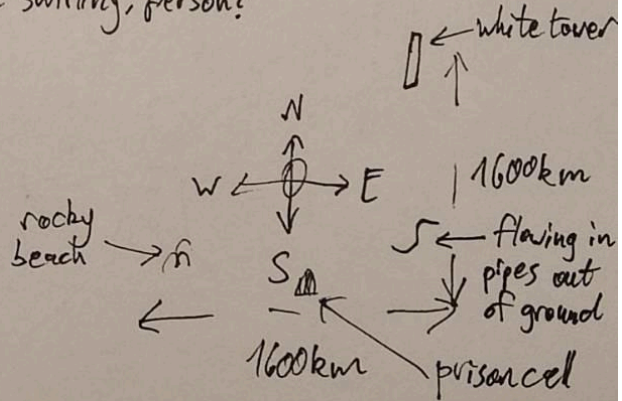 smiling, person?
white tower
N
W E
1600km
rocky
beach
S
flowing in
pipes out
of ground
1600km
prison cell